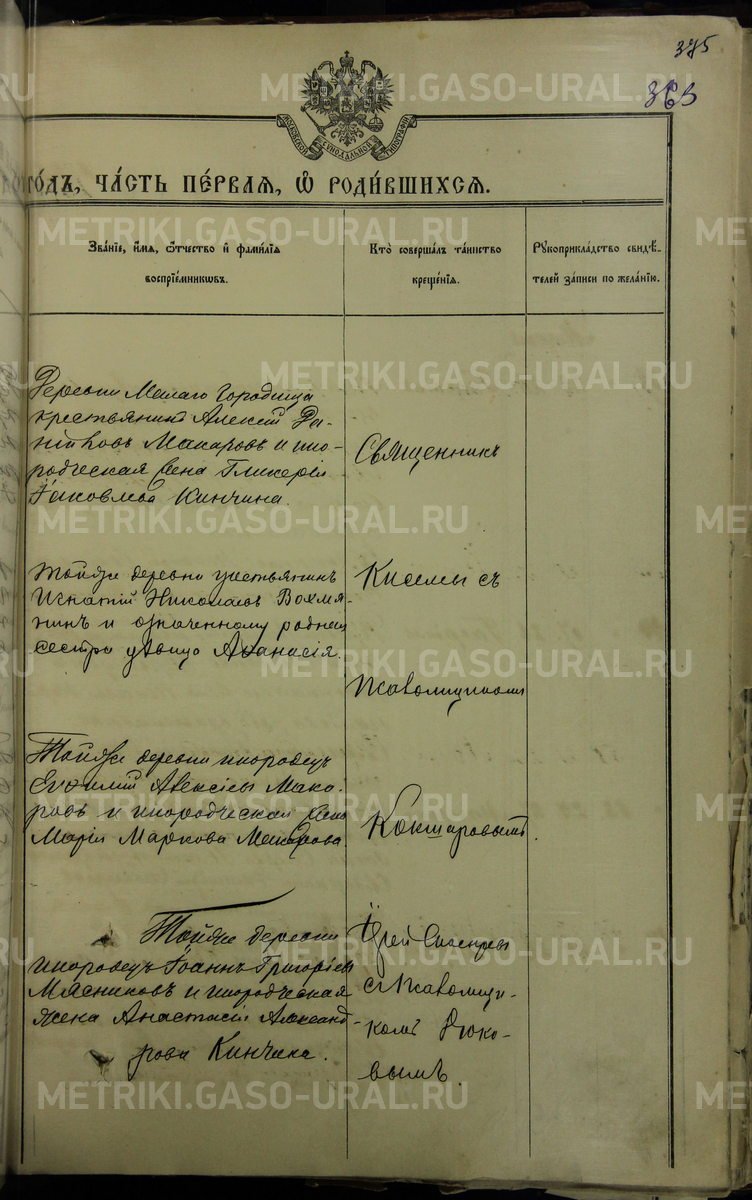 375
363
МОСКОВСКОЙ СУНОДАЛЬНОЙ ТИПОГРАФІИ
ГО́ДЪ, ЧА́СТЬ ПЕ́РВАЯ, Ѡ РОДИ́ВШИХСѦ.
Зва́нїе, и́мя, ѻ́тчество и҆ фами́лїя
воспрїе́мникωвъ.
Кто̀ соверша́лъ та́инство
креще́нїя.
Рукоприкла́дство свидѣ́-
телей за́писи по жела́нїю.
Деревни Малаго Городища
крестьянинъ Алексѣй
Макаровъ и ино-
родческая жена Гликерія
Іаковлева Кинчина.
Священникъ
Тойже деревни крестьянинъ
Игнатій Николаевъ Вохмя-
нинъ и означенному родная
сестра дѣвица Аѳанасія.
Киселы съ
Псаломщикомъ
Тойже деревни инородецъ
Евѳимій Алексіевъ Мака-
ровъ и инородческая жена
Марія Маркова Макарова.
Кокшаровымъ
Тойже деревни
инородецъ Іоаннъ Григоріевъ
Мясниковъ и инородческая
жена Анастасія Александ-
рова Кинчина.
Іерей
съ Псаломщи-
комъ Дюко-
вымъ.
METRIKI.GASO-URAL.RU